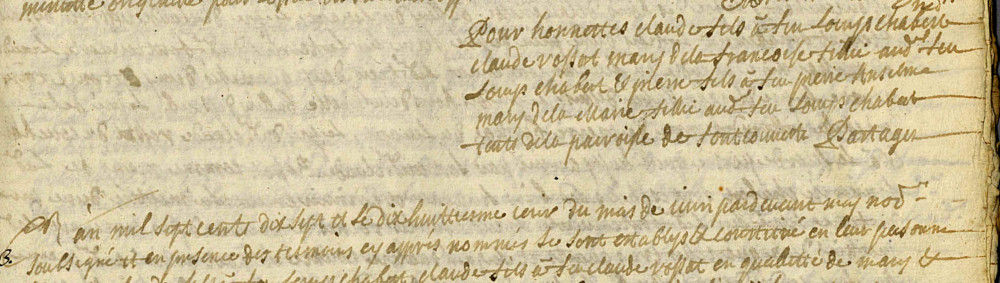 minutte
Pour honnettes claude fils a feu Loups chabert
claude rossat mary de la francoise fillie aud.t feu
Loups chabert & pierre fils a feu pierre Anselme
mary de la Marie fillie aud.t feu Loups chabert
touts de la parroisse de fontcouverte Partages
L an mil sept cent dix sept et le dix huittieme jour du mois de juin pardevant moy no.re
soubsigné et en presence des tesmoins cy appres nommés se sont establys & constitué en leur personne
fils a feu Loups chabert claude fils a feu claude rossat en qualitté de mary &